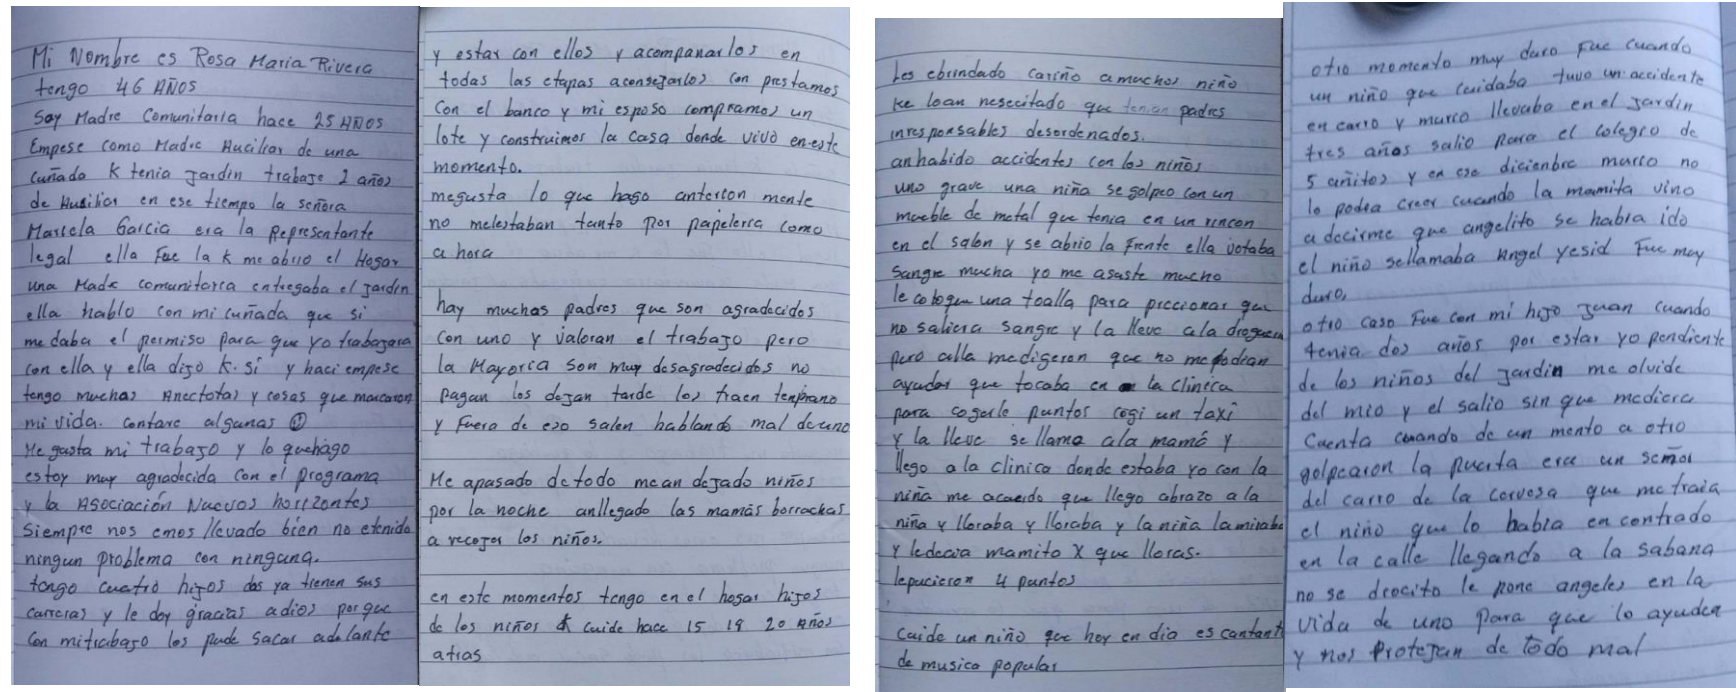 Mi Nombre es Rosa Maria Rivera
tengo 46 AÑOS
Soy Madre Comunitaria hace 25 AÑOS
Empese como Madre Auciliar de una
cuñado K tenia Jardin trabaje 2 años
de Ausiliar en ese tiempo la señora
Marcela Garcia era la Representante
legal ella Fue la K me abrio el Hogar
una Madre comunitaria entregaba el Jardin
ella hablo con mi cuñada que si
me daba el permiso para que yo trabajara
con ella y ella dijo K. Si y haci empese
tengo muchas Anectotas y cosas que marcaron
mi vida. contare algunas
Me gusta mi trabajo y lo quehago
estoy muy agradecida con el programa
y la Asociación Nuevos horizontes
Siempre nos emos llevado bien no etenido
ningun problema con ninguna.
tengo cuatro hijos dos ya tienen sus
carreras y le doy gracias adios porque
con mitrabajo los pude sacar adelante
y estar con ellos y acompañarlos en
todas las etapas aconsejarlos con prestamos
Con el banco y mi esposo compramos un
lote y construimos la casa donde vivo en este
momento.
megusta lo que hago anterion mente
no melestaban tanto por papeleria como
a hora
hay muchas padres que son agradecidos
con uno y valoran el trabajo pero
la Mayoria son muy desagradecidos no
pagan los dejan tarde los traen temprano
y Fuera de eso salen hablando mal deuno
Me apasado detodo mean dejado niños
por la noche anllegado las mamás borrachas
a recojer los niños.
en este momentos tengo en el hogar hijos
de los niños K cuide hace 15 19 20 Años
atras
les ebrindado cariño amuchos niño
ke loan nesecitado que tenian padres
inresponsables desordenados.
an habido accidentes con los niños
uno grave una niña se golpeo con un
mueble de metal que tenia en un rincon
en el salon y se abrio la Frente ella votaba
Sangre mucha yo me asuste mucho
le coloque una toalla para preccionar que
no saliera Sangre y la lleve ala drogueria
pero alla medigeron que no me podian
ayudar que tocaba en la clinica
para cogerle puntos cogi un taxi
y la lleve se llama ala mamá y
llego a la clinica donde estaba yo con la
niña me acuerdo que llego abrazo a la
niña y lloraba y lloraba y la niña la miraba
y ledecia mamito X que lloras.
lepucieron 4 puntos
Cuide un niño que hoy en dia es cantante
de musica popular
otro momento muy duro Fue cuando
un niño que cuidaba tuvo un accidente
en carro y murio llevaba en el Jardin
tres años salio para el colegio de
5 añitos y en ese diciembre murio no
lo podia creer cuando la mamita vino
a decirme que angelito se habia ido
el niño sellamaba Angel yesid Fue muy
duro,
otro caso Fue con mi hijo Juan cuando
tenia dos años por estar yo pendiente
de los niños del Jardin me olvide
del mio y el salio sin que mediera
Cuenta cuando de un mento a otro
golpearon la puerta era un señor
del carro de la cervesa que me traia
el niño que lo habia en contrado
en la calle llegando a la sabana
no se diocito le pone angeles en la
vida de uno para que lo ayuden
y nos Protejan de todo mal